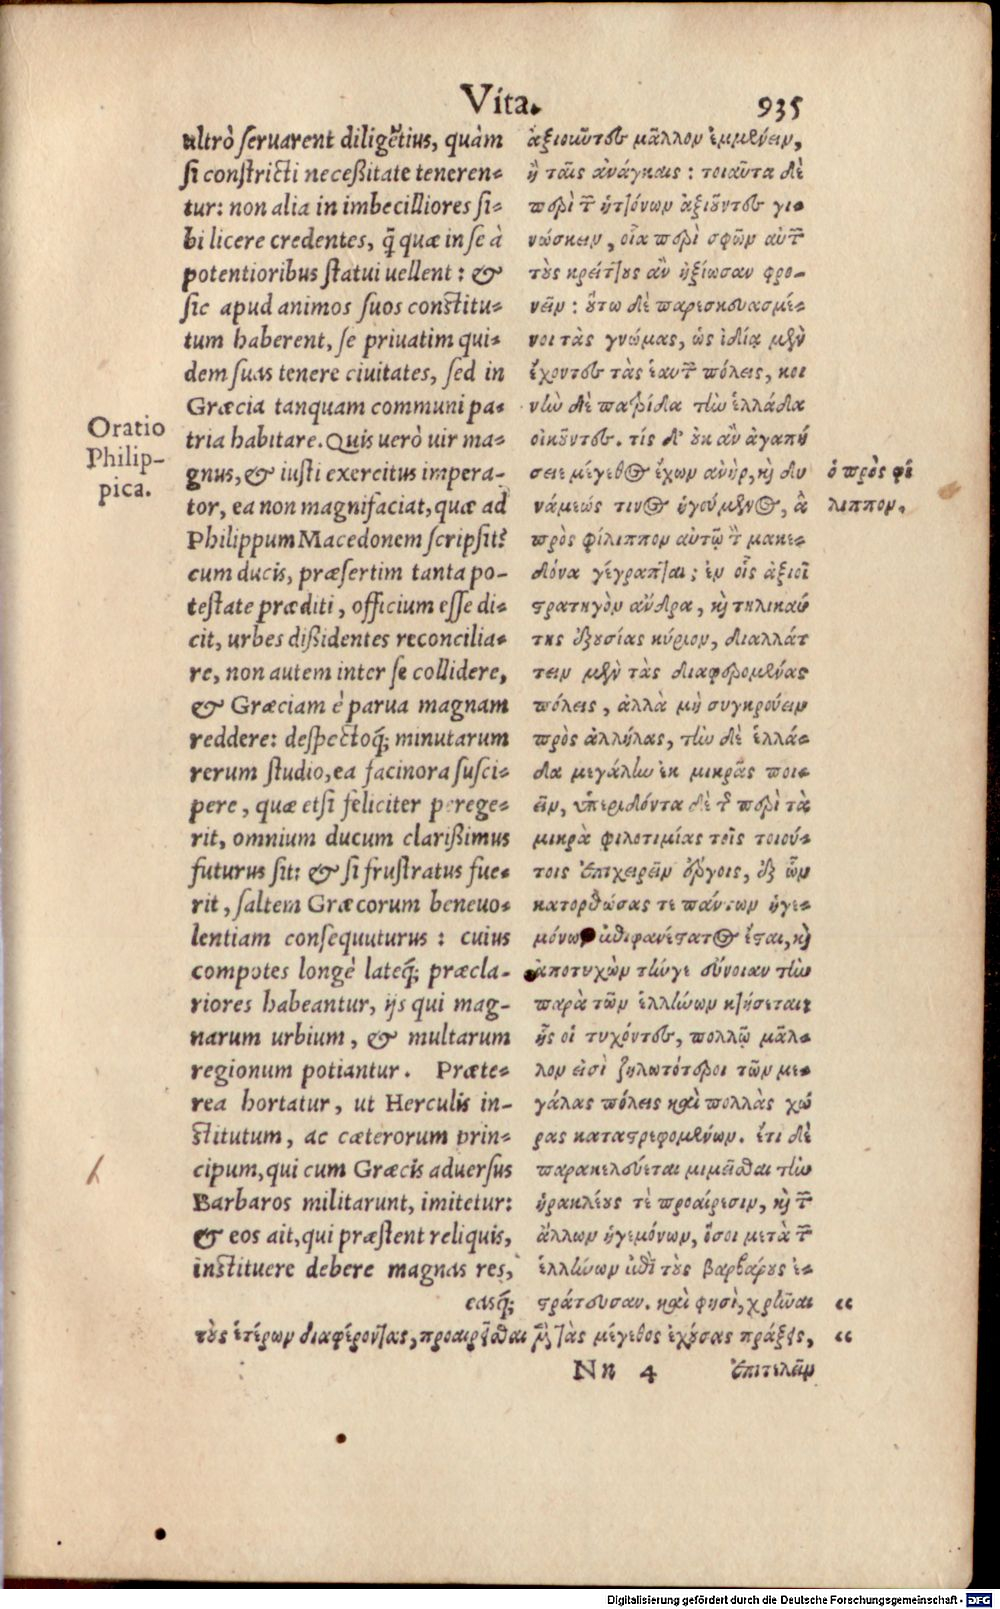 Vita. 935
ultrò seruarent diligẽtius, quàm
si constricti neceßitate teneren-
tur: non alia in imbecilliores si-
bi licere credentes, q̃ quæ in se à
potentioribus statui uellent: &
sic apud animos suos constitu-
tum haberent, se priuatim qui-
dem suas tenere ciuitates, sed in
Græcia tanquam communi pa-
tria habitare. Quis uerò uir ma-
gnus, & iusti exercitus impera-
tor, ea non magnifaciat, quæ ad
Philippum Macedonem scripsit?
cum ducis, præsertim tanta po-
testate præditi, officium esse di-
cit, urbes dißidentes reconcilia-
re, non autem inter se collidere,
& Græciam è parua magnam
reddere: despectoq́; minutarum
rerum studio, ea facinora susci-
pere, quæ etsi feliciter perege-
rit, omnium ducum clarißimus
futurus sit: & si frustratus fue-
rit, saltem Græcorum beneuo-
lentiam consequuturus: cuius
compotes longè lateq́; præcla-
riores habeantur, ijs qui mag-
narum urbium, & multarum
regionum potiantur. Præte-
rea hortatur, ut Herculis in-
stitutum, ac cæterorum prin-
cipum, qui cum Græcis aduersus
Barbaros militarunt, imitetur:
& eos ait, qui præstent reliquis,
instituere debere magnas res,
easq́;
Oratio
Philip-
pica.
ἀξιοῦντες μᾶλλον ἐμμένειν,
ἢ ταῖς ἀνάγκαις: τοιαῦτα δὲ
περὶ τῶν ἡττόνων ἀξιοῦντες γι-
νώσκειν, οἷα περὶ σφῶν αὐτῶν
τοὺς κρείττους ἂν ἠξίωσαν φρο-
νεῖν: οὕτω δὲ παρεσκευασμέ-
νοι τὰς γνώμας, ὡς ἰδίᾳ μὲν
ἔχοντες τὰς ἑαυτῶν πόλεις, κοι
νὴν δὲ πατρίδα τὴν ἑλλάδα
οἰκοῦντες. τίς δ' οὐκ ἂν ἀγαπή
σειε μέγεθος ἔχων ἀνὴρ, καὶ δυ
νάμεώς τινος ἡγούμενος, ἃ
πρὸς φίλιππον αὐτῷ τὸν μακε-
δόνα γέγραπται; ἐν οἷς ἀξιοῖ
στρατηγὸν ἄνδρα, καὶ τηλικαύ
της ἐξουσίας κύριον, διαλλάτ
τειν μὲν τὰς διαφερομένας
πόλεις, ἀλλὰ μὴ συγκρούειν
πρὸς ἀλλήλας, τὴν δὲ ἑλλά-
δα μεγάλην ἐκ μικρᾶς ποι-
εῖν, ὑπεριδόντα δὲ τῆς περὶ τὰ
μικρὰ φιλοτιμίας τοῖς τοιού-
τοις ἐπιχειρεῖν ἔργοις, ἐξ ὧν
κατορθώσας τε πάντων ἡγε-
μόνων ἐπιφανέστατος ἔσται, καὶ
ἀποτυχὼν τήνγε εὔνοιαν τὴν
παρὰ τῶν ἑλλήνων κτήσεται:
ἧς οἱ τυχόντες, πολλῷ μᾶλ-
λον εἰσὶ ζηλωτότεροι τῶν με-
γάλας πόλεις καὶ πολλὰς χώ
ρας καταστρεφομένων. ἔτι δὲ
παρακελεύεται μιμεῖσθαι τὴν
ἡρακλέους τὲ προαίρεσιν, καὶ τῶν
ἄλλων ἡγεμόνων, ὅσοι μετὰ τῶν
ἑλλήνων ἐπὶ τοὺς βαρβάρους ἐ-
στράτευσαν. καὶ φησὶ, χρῆναι “
τοὺς ἑτέρων διαφέροντας, προαιρεῖσθαι μὲν τὰς μέγεθος ἐχούσας πράξεις, “
ὁ πρὸς φί
λιππον.
Nn 4 ἐπιτελεῖν
Digitalisierung gefördert durch die Deutsche Forschungsgemeinschaft - DFG